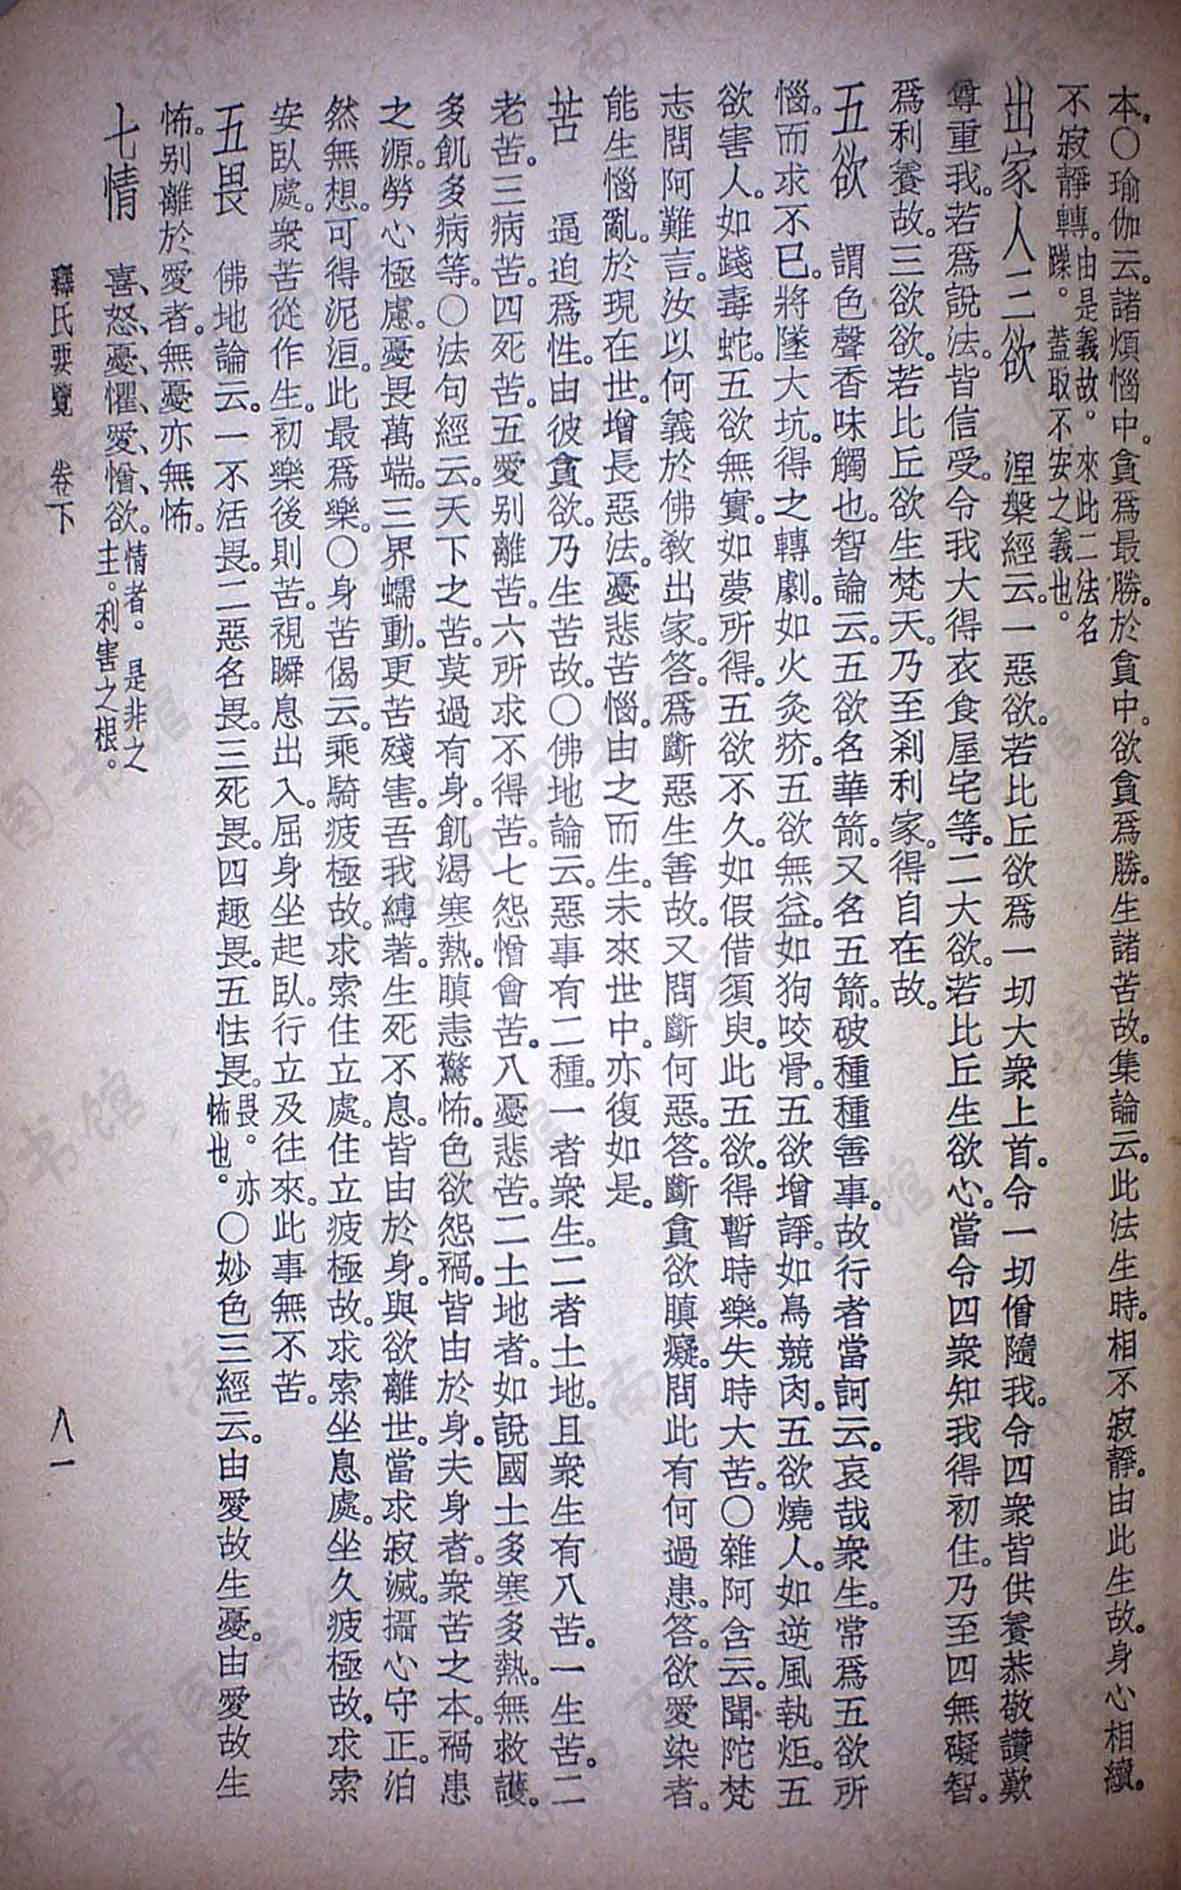 本。〇瑜伽云。諸煩惱中。貪爲最勝。於貪中。欲貪爲勝。生諸苦故。集論云。此法生時。相不寂靜。由此生故。身心相續。
不寂靜轉。由是義故。來此二法名
躁。蓋取不安之義也。
出家人三欲　涅槃經云。一惡欲。若比丘欲爲一切大衆上首。令一切僧隨我。令四衆皆供養恭敬讚歎
尊重我。若爲說法。皆信受。令我大得衣食屋宅等。二大欲。若比丘生欲心。當令四衆知我得初住。乃至四無礙智。
爲利養故。三欲欲。若比丘欲生梵天。乃至刹利家。得自在故。
五欲　謂色聲香味觸也。智論云。五欲名華箭。又名五箭。破種種善事。故行者當訶云。哀哉衆生。常爲五欲所
惱。而求不已。將墜大坑。得之轉劇。如火灸疥。五欲無益。如狗咬骨。五欲增諍。如鳥競肉。五欲燒人。如逆風執炬。五
欲害人。如踐毒蛇。五欲無實。如夢所得。五欲不久。如假借須臾。此五欲。得暫時樂。失時大苦。〇雜阿含云。聞陀梵
志問阿難言。汝以何義於佛敎出家。答。爲斷惡生善故。又問斷何惡。答。斷貪欲瞋癡。問此有何過患。答。欲愛染者。
能生惱亂。於現在世。增長惡法。憂悲苦惱。由之而生。未來世中。亦復如是。
苦　逼迫爲性。由彼貪欲。乃生苦故。〇佛地論云。惡事有二種。一者衆生。二者土地。且衆生有八苦。一生苦。二
老苦。三病苦。四死苦。五愛别離苦。六所求不得苦。七怨憎會苦。八憂悲苦。二土地者。如說國土多寒多熱。無救護。
多飢多病等。〇法句經云。天下之苦。莫過有身。飢渴寒熱。瞋恚驚怖。色欲怨禍。皆由於身。夫身者。衆苦之本。禍患
之源。勞心極慮。憂畏萬端。三界蠕動。更苦殘害。吾我縛著。生死不息。皆由於身。與欲離世。當求寂滅。攝心守正。泊
然無想。可得泥洹。此最爲樂。〇身苦偈云。乘騎疲極故。求索住立處。住立疲極故。求索坐息處。坐久疲極故。求索
安臥處。衆苦從作生。初樂後則苦。視瞬息出入。屈身坐起臥。行立及往來。此事無不苦。
五畏　佛地論云。一不活畏。二惡名畏。三死畏。四趣畏。五怯畏。畏。亦怖也。〇妙色三經云。由愛故生憂。由愛故生
怖。别離於愛者。無憂亦無怖。
七情　喜、怒、憂、懼、愛、憎、欲。情者。是非之
主。利害之根。
釋氏要覽　卷下　八一